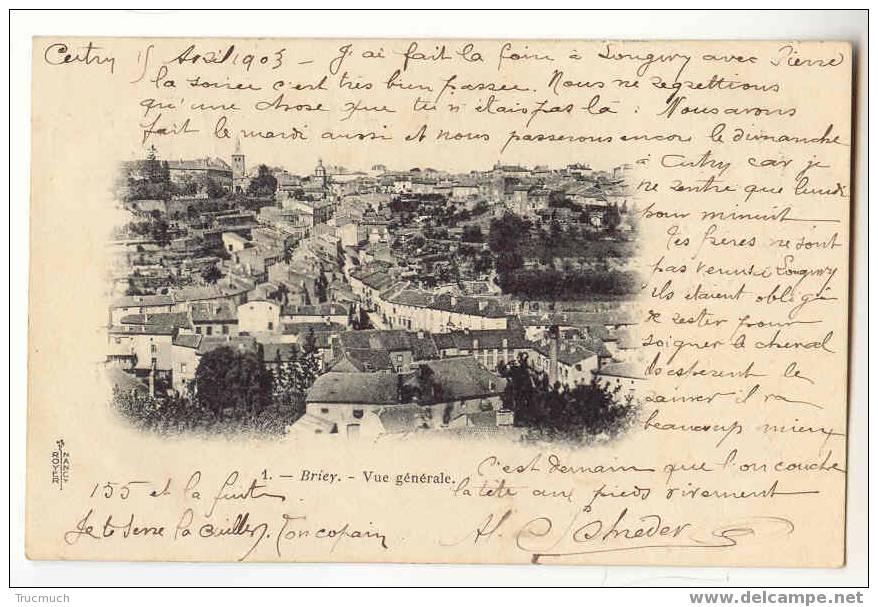 Cutry 15 Avril 1903 - J'ai fait la foire à Longwy avec Pierre
la soiree c'est très bien passée. Nous ne regrettions
qu'une chose que tu n'étais pas là : Nous avons
fait le mardi aussi et nous passerons encore le dimanche
à Cutry car je
ne rentre que lundi
pour minuit
Tes frères ne sont
pas venus à Longwy
ils étaient obligé
de rester pour
soigner le cheval
Ils esperent le
sauver il va
beaucoup mieux
C'est demain que l'on couche
la tête aux pieds vivement
155 et la fuite
Je te serre la cuiller. Ton copain
Al. Schneder
1. — Briey. - Vue générale.
ROYER
NANCY
Trucmuch
www.delcampe.net